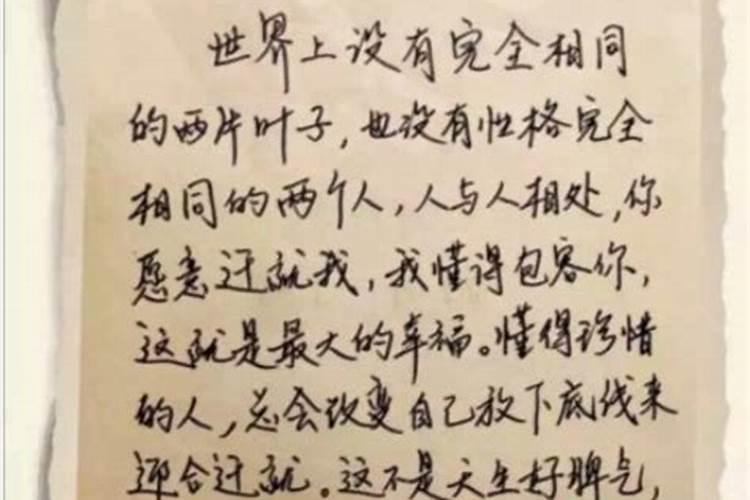 世界上没有完全相同
的两片叶子，也没有性格完全
相同的两个人，人与人相处，你
愿意迁就我，我懂得包容你，
这就是最大的幸福。懂得珍惜
的人，总会改变自己放下底线来
迎合迁就。这不是天生好脾气，